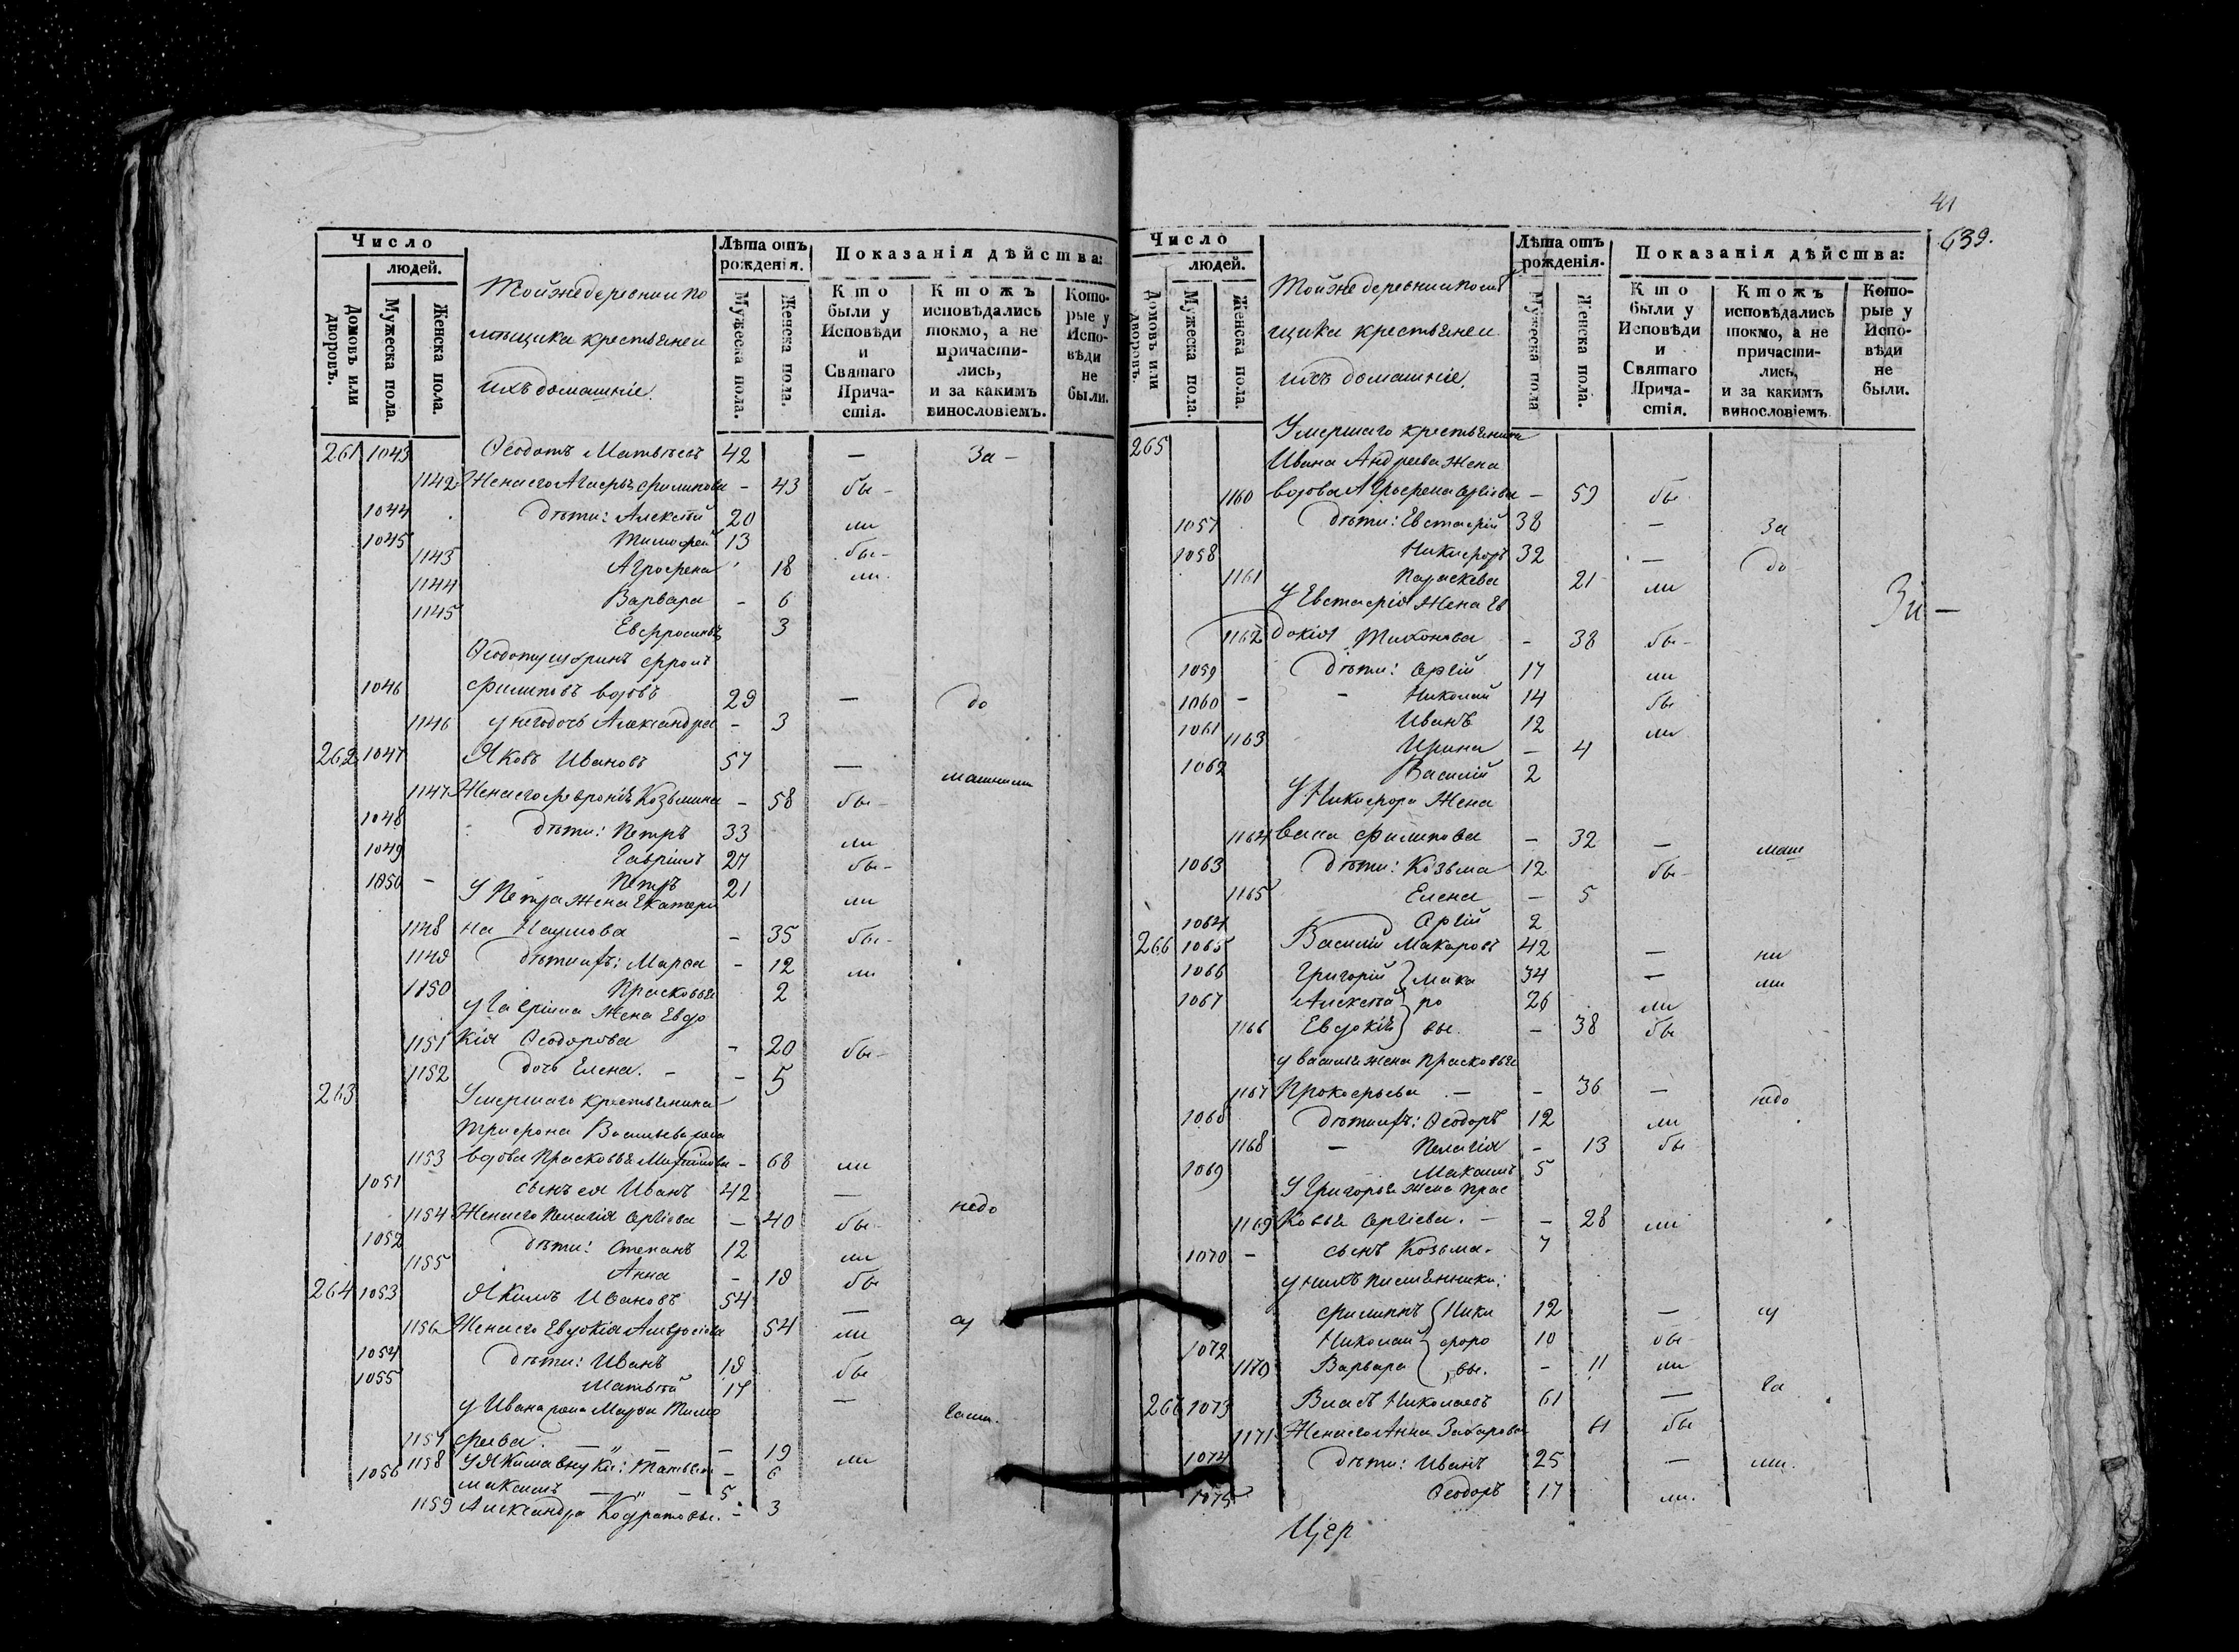 Число
людей.
Домовъ или дворовъ.
Мужеска пола.
Женска пола.
Той же деревни по
мѣщика крестьяне и
ихъ домашніе.
Лѣта отъ рожденія.
Мужеска пола.
Женска пола.
Показанія дѣйства:
Кто были у Исповѣди и Святаго Причастія.
Ктожъ исповѣдались токмо, а не причастились, и за какимъ винословіемъ.
Которые у Исповѣди не были.
261 1043 Ѳеодотъ Матвѣевъ 42 — За —
1142 Жена его Агафья Филипова - 43 бы-
1044 Дѣти: Алексѣй 20 ли
1045 Тимофей 13 бы-
1143 Агрофена 18 ли.
1144 Варвара - 6
1145 Евфросинья 3
Ѳеодоту шуринъ Фролъ
1046 Филиповъ вдовъ 29 — до
1146 у него дочь Александра - 3
262 1047 Яковъ Ивановъ 57 —
1147 Жена его Февронія Козьмина - 58 бы-
1048 Дѣти: Петръ 33 ли
1049 Гавріилъ 27 бы-
1050 - Петръ 21 ли
У Петра Жена Екатери
1148 на Наумова - 35 бы-
1149 Дѣти ихъ: Марѳа - 12 ли
1150 Прасковья 2
у Гавріила Жена Евдо
1151 кія Ѳеодорова - 20 бы-
1152 дочь Елена. - - 5
263 Умершаго крестьянина
Трифона Васильева жена
1153 вдова Прасковья - 68 ли
1051 сынъ ея Иванъ 42 —
1154 Жена его Пелагія Сергіева - 40 бы- недо
1052 Дѣти: Степанъ 12 ли
1155 Анна - 19 бы
264 1053 Якимъ Ивановъ 54 —
1156 Жена его Евдокія Амвросіева 54 ли су
1054 Дѣти: Иванъ 19 бы
1055 Матвѣй 17 —
у Ивана жена Марѳа Тимо
1157 феева. — " — - 19 ли
1158 У Якима внуки: - 6
1056 Максимъ — " - 5
1159 Александра Кодратовы. - 3
41
639.
Число
людей.
Домовъ или дворовъ.
Мужеска пола.
Женска пола.
Той же деревни помѣ
щика крестьяне и
ихъ домашніе.
Лѣта отъ рожденія.
Мужеска пола
Женска пола.
Показанія дѣйства:
Кто были у Исповѣди и Святаго Причастія.
Ктожъ исповѣдались токмо, а не причастились, и за какимъ винословіемъ
Которые у Исповѣди не были.
265 Умершаго крестьянина
Ивана Андреева Жена
1160 вдова Агрофена Сергіева - 59 бы
1057 Дѣти: Евстафій 38 — За
1058 Никифоръ 32 — до
1161 Параскева 21 ли
У Евстафія Жена Ев
1162 докія Тихонова - 38 бы-
1059 Дѣти: Сергій 17 ли
1060 - - Николай 14 бы
1061 Иванъ 12 ли
1163 Ирина — 4
1062 Василій 2
У Никифора Жена
1164 Филипова - 32 —
1063 Дѣти: Козьма 12 бы-
1165 Елена — 5
1064 Сергій 2
266 1065 Василій Макаровъ 42 — ни
1066 Григорій } Мака 34 — ли
1067 Алексѣй } ро 26 ли
1166 Евдокія } вы. - 38 бы
у Василья жена Прасковья
1167 Прокофьева - - 36 — недо
1068 Дѣти ихъ: Ѳеодоръ 12 ли
1168 — Пелагія - 13 бы
1069 Максимъ 5
У Григорья жена Прас
1169 ковья Сергіева. - - 28 ли
1070 - сынъ Козьма. 7
у нихъ племянники:
Филиппъ { Ники 12 — су
1072 Николай } форо 10 бы-
1170 Варвара { вы. - 11 ли
1073 Власъ Николаевъ 61 —
1171 Жена его Анна Захарова бы
1074 Дѣти: Иванъ 25 — ли.
1075 Ѳеодоръ 17 ли.